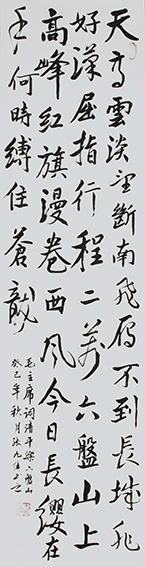 天高雲淡望斷南飛雁不到長城非
好漢屈指行程二萬六盤山上
高峰红旗漫卷西風今日長纓在
手何時縛住蒼龍
毛主席词清平樂六盤山
癸巳年秋月张九